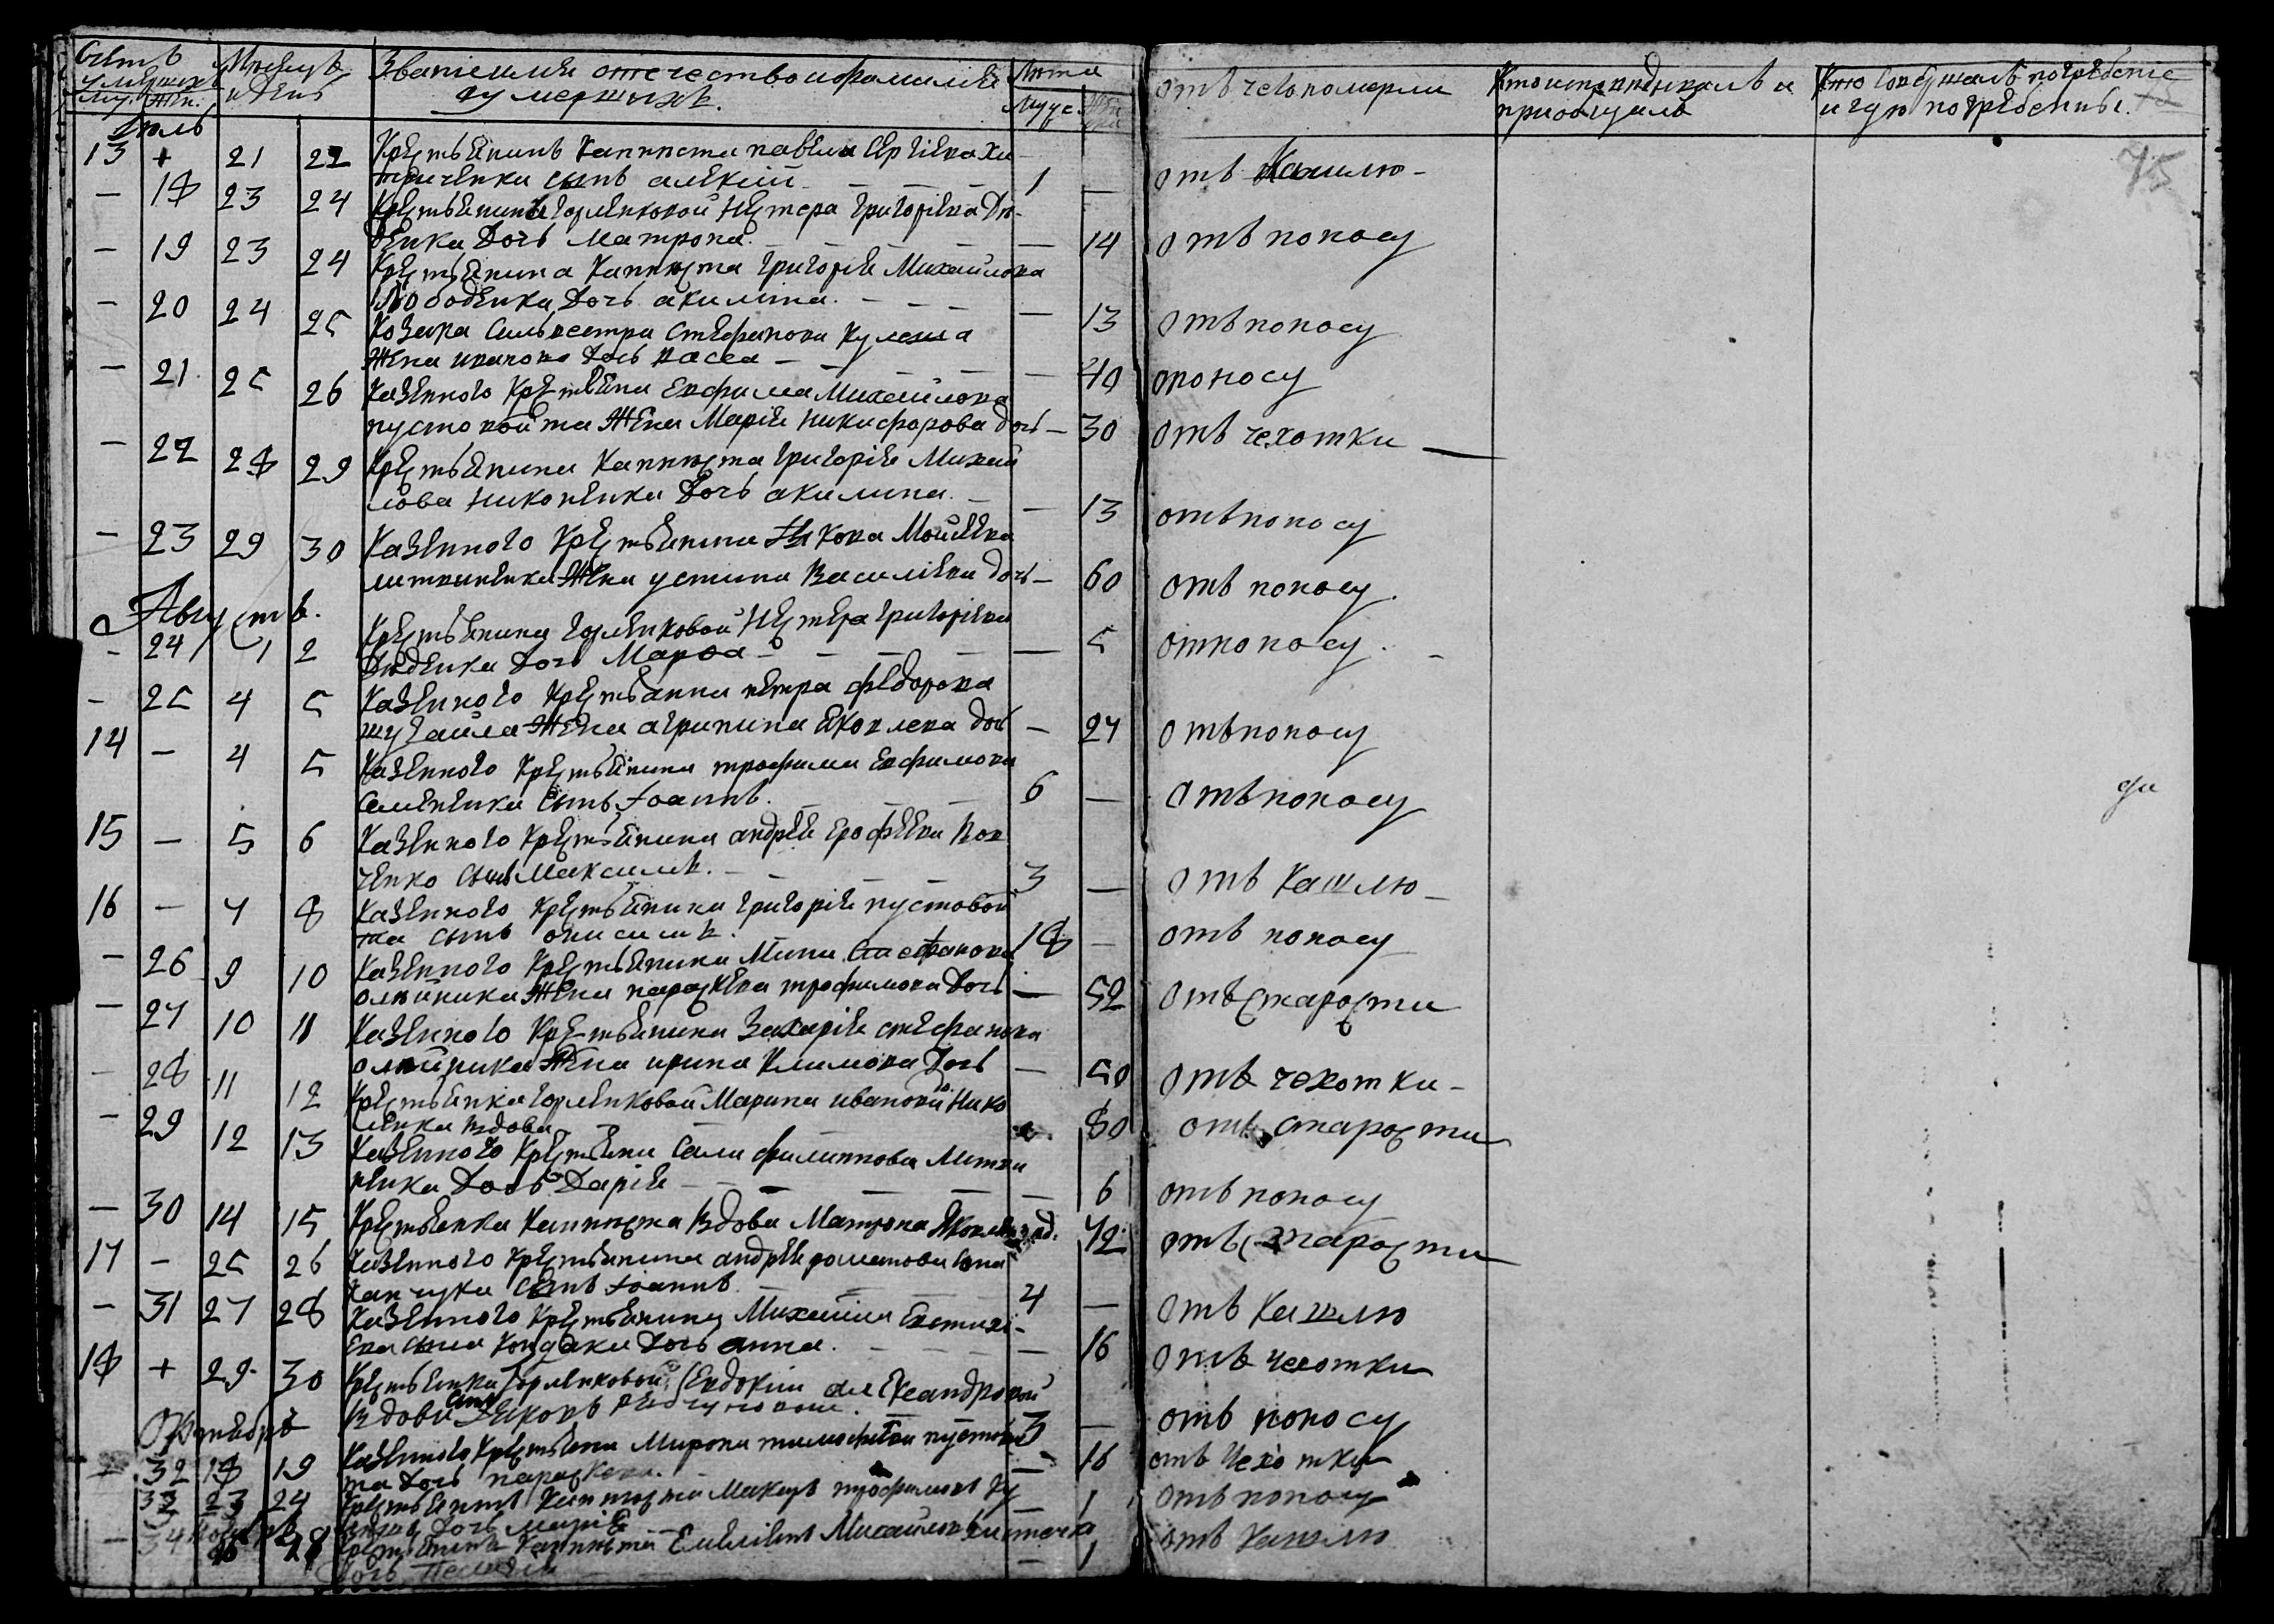 Счетъ умершихъ
Муж. Жен.
Мѣсяцъ и день
Званіе имя отечество и фамилія
умершихъ.
Лѣта
Муж.
отъ чего померли
Кто исповѣдывалъ и
приобщалъ
Кто совершалъ погребеніе
и гдѣ погребенны.
75
Іюль
13 + 21 22 Крестьянинъ Капниста Павла Сергіева
сынъ Алексій 1 — отъ Кашлю
— 18 23 24 Крестьянина Горленковой Нестера Григоріева Дю-
денка дочь Матрона — 14 отъ поносу
— 19 23 24 Крестьянина Капниста Григорія Михайлова
дочь Акилина — 13 отъ поносу
— 20 24 25 Козака Сильвестра Стефанова Кулеша
жена Иванова дочь Васса — 40 поносу
— 21 25 26 Казенного крестьянина Евфима Михайлова
Пустовойта жена Марія Никифорова дочь — 30 отъ чехотки
— 22 28 29 Крестьянина Капниста Григорія Михай
лова дочь Акилина — 13 отъ поносу
— 23 29 30 Казенного крестьянина Якова Моисеева
Литвиненка жена Устина Василіева дочь — 60 отъ поносу.
Августъ.
— 24 1 2 Крестьянина Горленковой Нестера Григоріева
Дюденка дочь Марѳа — 5 от поносу.
— 25 4 5 Казенного крестьянина Петра Федорова
Шугайла жена Агрипина Яковлева дочь — 27 отъ поносу
14 — 4 5 Казенного крестьянина Трофима Евфимова
Семененка сынъ Іоаннъ. 6 — отъ поносу
15 — 5 6 Казенного крестьянина Андрея Ерофеева Вов
ченко сынъ Максимъ. 3 — отъ Кашлю
16 — 7 8 Казенного крестьянина Григорія Пустовой
та сынъ Онисимъ. 18 — отъ поносу
— 26 9 10 Казенного крестьянина Мины Стефанова
Олѣйника жена Параскева Трофимова дочь — 52 отъ старости
— 27 10 11 Казенного крестьянина Захарія Стефанова
Олѣйника жена Ирина Климова дочь — 50 отъ чехотки
— 28 11 12 Крестьянка Горленковой Марина Иванова
вдова 80 отъ старости
— 29 12 13 Казенного крестьянина Савы Филиппова Литви
ненка дочь Дарія — 6 отъ поносу
— 30 14 15 Крестьянка Капниста вдова Матрона 72 отъ старости
17 — 25 26 Казенного крестьянина Андрея
сынъ Іоаннъ 4 — отъ Кашлю
— 31 27 28 Казенного крестьянина Михаила Евтихі-
ева сына Кондака дочь Анна. — 16 отъ чехотки
18 + 29 30 Крестьянки Горленковой Евдокіи Александровой
вдовы сынъ Яковъ 3 — отъ поносу
Октябрь
— 32 18 19 Казенного крестьянина Мирона Тимофеева Пустовой
та дочь Параскева. — 16 отъ чехотки
33 23 24 Крестьянинъ Капниста Макаръ Трофимовъ
дочь Марія — 1 отъ поносу
Ноябрь
— 34 28 Крестьянинъ Капниста Михайловъ
дочь — 1 отъ Кашлю